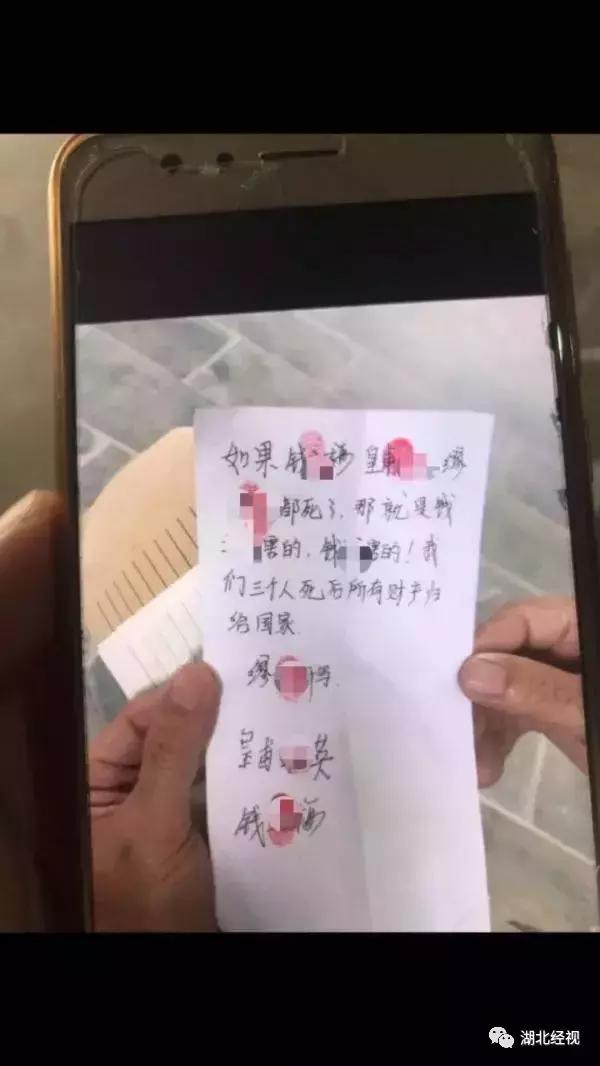 如果钱 梅皇甫 缪
都死了，那就是钱
害的，钱 害的！我
们三个人死后所有财产归
给国家
缪
皇甫 英
钱 海
湖北经视